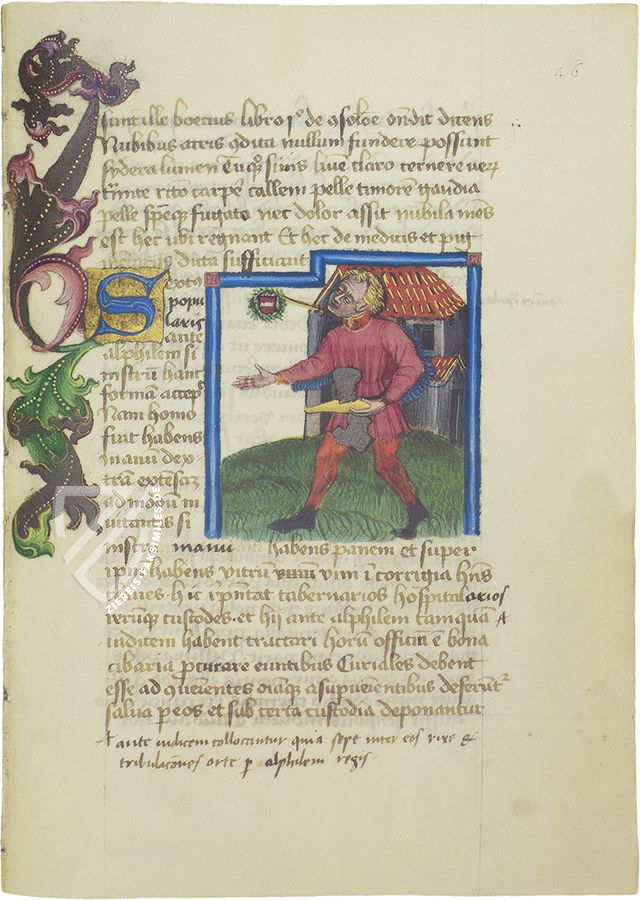 46
sunt ille boetius libro pº de ꝯsoloe oñdit dicens
Nubibus atris ꝯdita nullum fundere possunt
sydera lumen
lumine claro cernere verꝝ
tramite recto carpe callem pelle timore gaudia
pelle speꝫq fugato nec dolor assit nubila mēs
est hec ubi regnant Et hec de medicis et pig
mentariis dicta sufficiant
Sexto
popu
laris
ante
alphilem si
nistrū hanc
formā accep̄
Nam homo
fuit habens
manū dex
trā extēsaꝫ
ad modū in
vitantis si
nistra manu habens panem et super
ipm habens vitrū vini ī corrigia hn̄s
claves· hic rp̄ntat tabernarios hospitalarios
rerumq custodes· et hij ante alphilem tamquā
iudicem habent tractari horū offitium ē bona
cibaria ꝓcurare euntibus Curiales debent
esse ad ꝯuenientes
salva ꝑ eos et sub certa custodia deponantur
ante iudicem collocantur quia sepe inter eos rixe et
alphilem regis
ZIEREIS FAKSIMILES